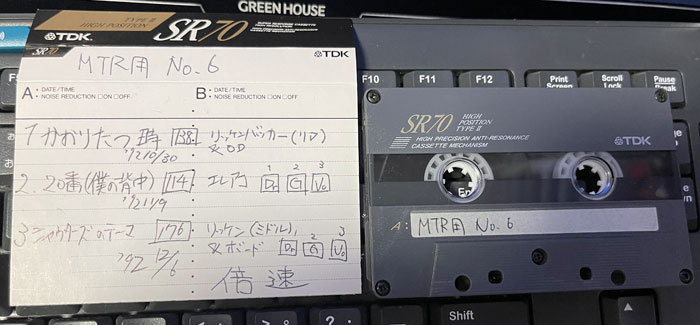 GREEN HOUSE
TYPE II
HIGH POSITION
SUPER RESPONSE CASSETTE
HIGH RESOLUTION
TDK
SR70
SR70
TDK
MTR用 No.6
A: DATE/TIME
NOISE REDUCTION □ON □OFF
B: DATE/TIME
NOISE REDUCTION □ON □OFF
1 かおりたつ時 138 リッケンバッカー(リア)
'92 10/30 & OD
2. 20番(僕の背中) 114 エレアコ 1 Dr 2 G 3 Vo
'92 11/9
3 シャウターズのテーマ 176 リッケン(ミドル),
'92 12/6 &ボード Dr 2 G 3 Vo
倍速
F10
F11
F12
Print
Screen
Scroll
Lock
Pause
Break
SR70
HIGH
POSITION
TYPE II
HIGH PRECISION ANTI-RESONANCE
CASSETTE MECHANISM
TDK
A:
MTR用 No.6
Shift